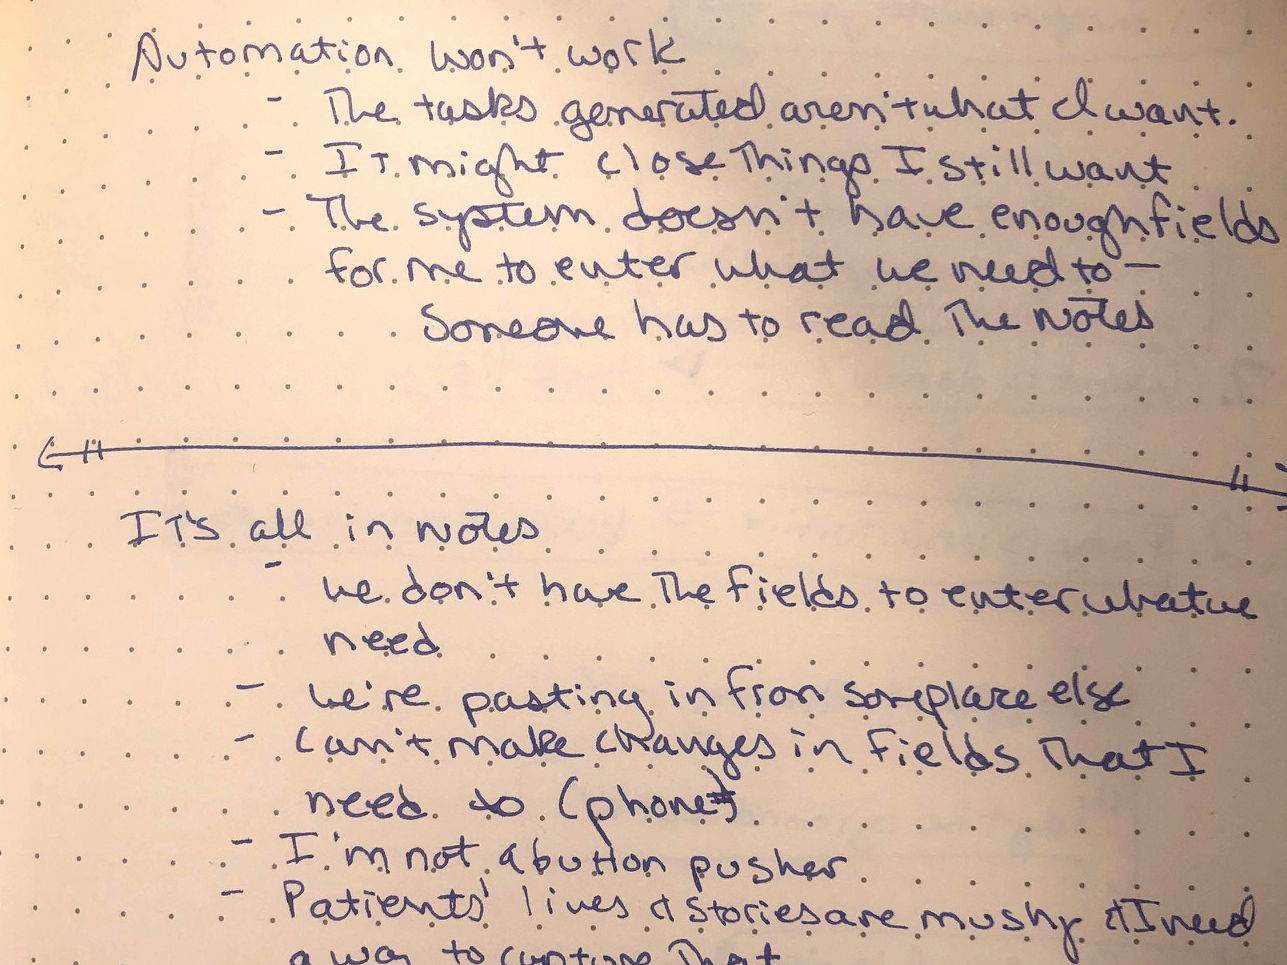 Automation won't work
- The tasks generated aren't what I want.
- It might close Things I still want
- The system doesn't have enough fields
for me to enter what we need to —
Someone has to read The notes
It's all in notes
- we don't have The fields to enter what we
need
- we're pasting in from someplace else
- Can't make changes in fields That I
need to (phone#)
- I'm not a button pusher
- Patients' lives & stories are mushy & I need
a way to capture That